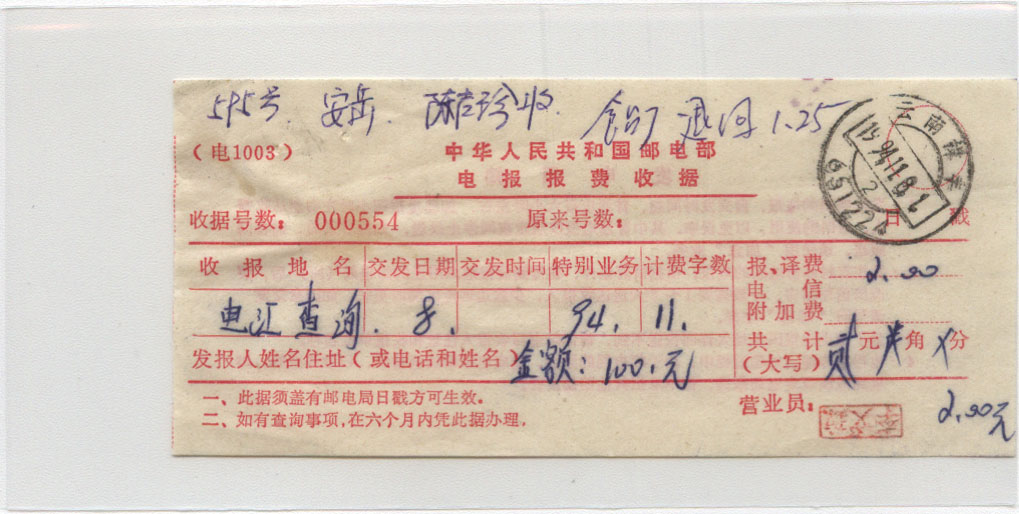 595号. 安岳. 陈吉珍收.
退回 1.25
(电1003)
中华人民共和国邮电部
电报报费收据
收据号数: 000554 原来号数: 日戳
云南
收报地名 交发日期 交发时间 特别业务 计费字数
报、译费 2.00
电汇查询. 8. 94. 11.
电信附加费
共计(大写) 贰元 角 分
发报人姓名住址(或电话和姓名) 金额: 100.元
一、此据须盖有邮电局日戳方可生效。
二、如有查询事项,在六个月内凭此据办理。
营业员:
2.00元